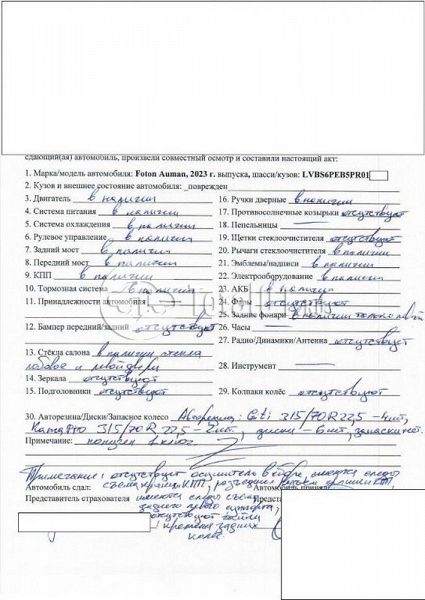 сдающий(ая) автомобиль, произвели совместный осмотр и составили настоящий акт:
1. Марка/модель автомобиля: Foton Auman, 2023 г. выпуска, шасси/кузов: LVBS6PEB5PR01
2. Кузов и внешнее состояние автомобиля: _поврежден
3. Двигатель в наличии
4. Система питания в наличии
5. Система охлаждения в наличии
6. Рулевое управление в наличии
7. Задний мост в наличии
8. Передний мост в наличии
9. КПП в наличии
10. Тормозная система в наличии
11. Принадлежности автомобиля
12. Бампер передний/задний отсутствует
13. Стёкла салона в наличии стекла
лобовое и левой двери
14. Зеркала отсутствуют
15. Подголовники отсутствуют
16. Ручки дверные в наличии
17. Противосолнечные козырьки отсутствуют
18. Пепельницы
19. Щетки стеклоочистителя отсутствуют
20. Рычаги стеклоочистителя в наличии
21. Эмблемы/надписи в наличии
22. Электрооборудование в наличии
23. АКБ в наличии
24. отсутствуют
25. Задние фонари в наличии только левый
26. Часы
27. Радио/Динамики/Антенна отсутствуют
28. Инструмент
29. Колпаки колёс отсутствуют
30. Авторезина/Диски/Запасное колесо Авторезина: Giti 315/70R22,5 - 4шт,
Кама 315/70R22,5 - 2шт, диски - 6шт, запаски нет.
Примечание: получен 1 ключ
Примечание: отсутствует в сборе, имеются следы
съема КПП,
Автомобиль сдал:
Представитель страхователя имеются следы съема
заднего левого
отсутствуют гайки
крепления задних
колес.